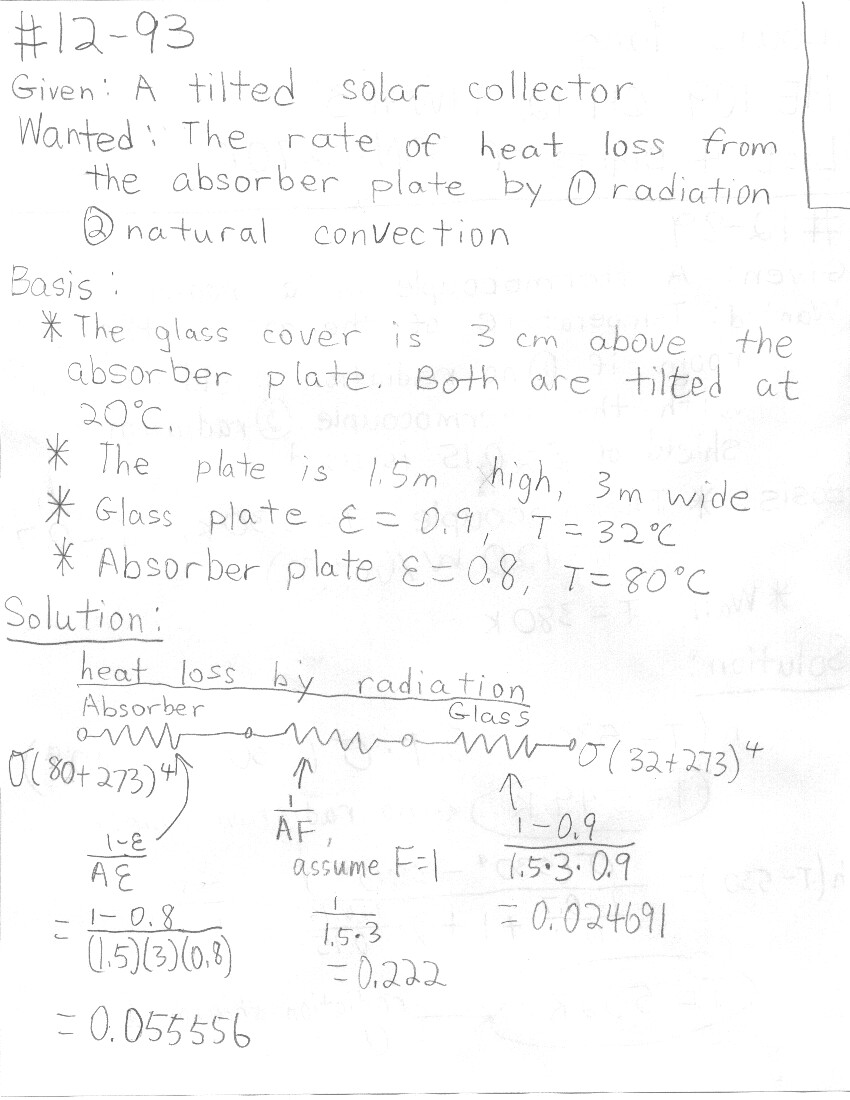 #12-93
Given: A tilted solar collector
Wanted: The rate of heat loss from
the absorber plate by ① radiation
② natural convection
Basis:
* The glass cover is 3 cm above the
absorber plate. Both are tilted at
20°C.
* The plate is 1.5m high, 3m wide
* Glass plate ε = 0.9, T = 32°C
* Absorber plate ε = 0.8, T = 80°C
Solution:
heat loss by radiation
Absorber Glass
σ(80+273)⁴ σ(32+273)⁴
1/AF,
assume F=1
(1-ε)/(Aε)
(1-0.9)/(1.5·3·0.9)
= 0.024691
1/(1.5·3)
= 0.222
= (1-0.8)/((1.5)(3)(0.8))
= 0.055556